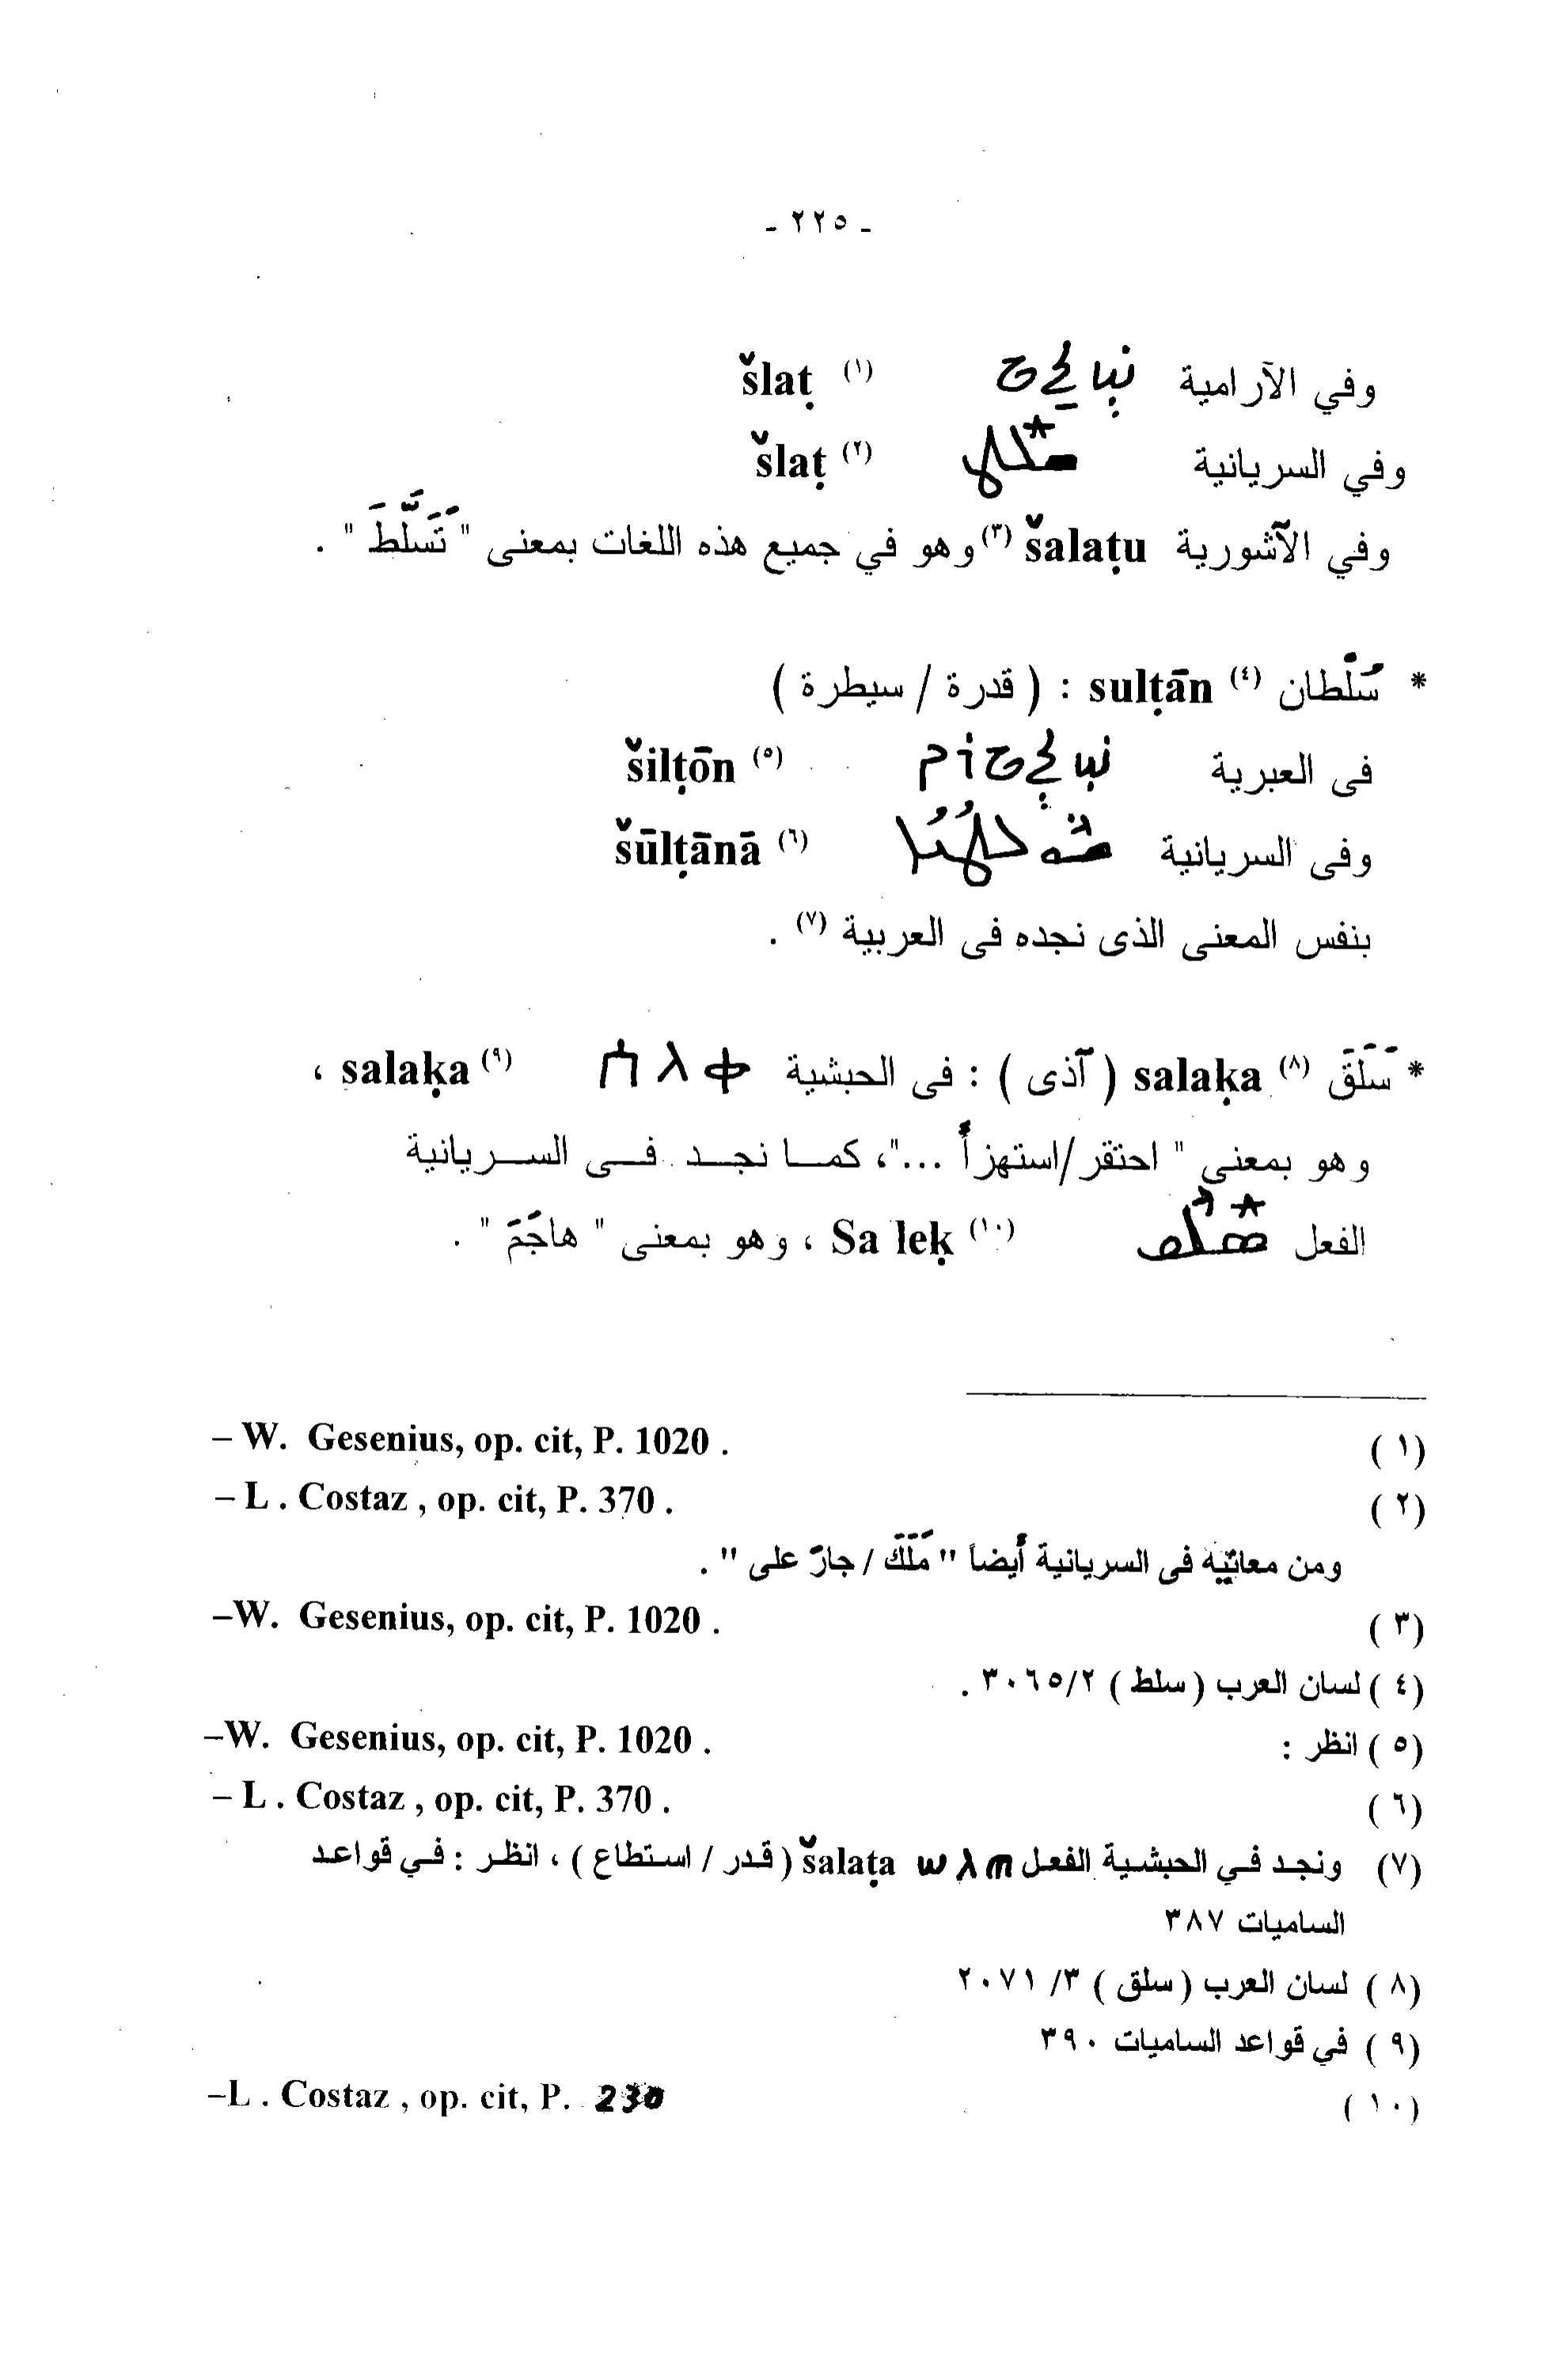 - ٢٢٥ -
وفي الآرامية שְׁלַט (١) šlaṭ
وفي السريانية ܫܠܛ (٢) šlaṭ
وفي الآشورية šalaṭu (٣) وهو في جميع هذه اللغات بمعنى " تَسَلَّطَ " .
* سُلْطان (٤) sulṭān : ( قدرة / سيطرة )
فى العبرية שִׁלְטוֹן (٥) šilṭōn
وفى السريانية ܫܘܠܛܢܐ (٦) šūlṭānā
بنفس المعنى الذى نجده فى العربية (٧) .
* سَلَقَ (٨) salaḳa ( آذى ) : فى الحبشية ሰለቀ (٩) salaḳa ،
وهو بمعنى " احتقر/استهزأ ..."، كمـا نجـد فـى السـريانية
الفعل ܣܠܩ (١٠) Sa leḳ ، وهو بمعنى " هاجَمَ " .
(١) – W. Gesenius, op. cit, P. 1020 .
(٢) – L . Costaz , op. cit, P. 370 .
ومن معانيه فى السريانية أيضاً " مَلَكَ / جارَ على " .
(٣) –W. Gesenius, op. cit, P. 1020 .
(٤) لسان العرب ( سلط ) ٣٠٦٥/٢ .
(٥) انظر : –W. Gesenius, op. cit, P. 1020 .
(٦) – L . Costaz , op. cit, P. 370 .
(٧) ونجد في الحبشية الفعل ሠለጠ šalaṭa ( قدر / استطاع ) ، انظر : في قواعد
الساميات ٣٨٧
(٨) لسان العرب ( سلق ) ٣/ ٢٠٧١
(٩) في قواعد الساميات ٣٩٠
(١٠) –L . Costaz , op. cit, P. 230